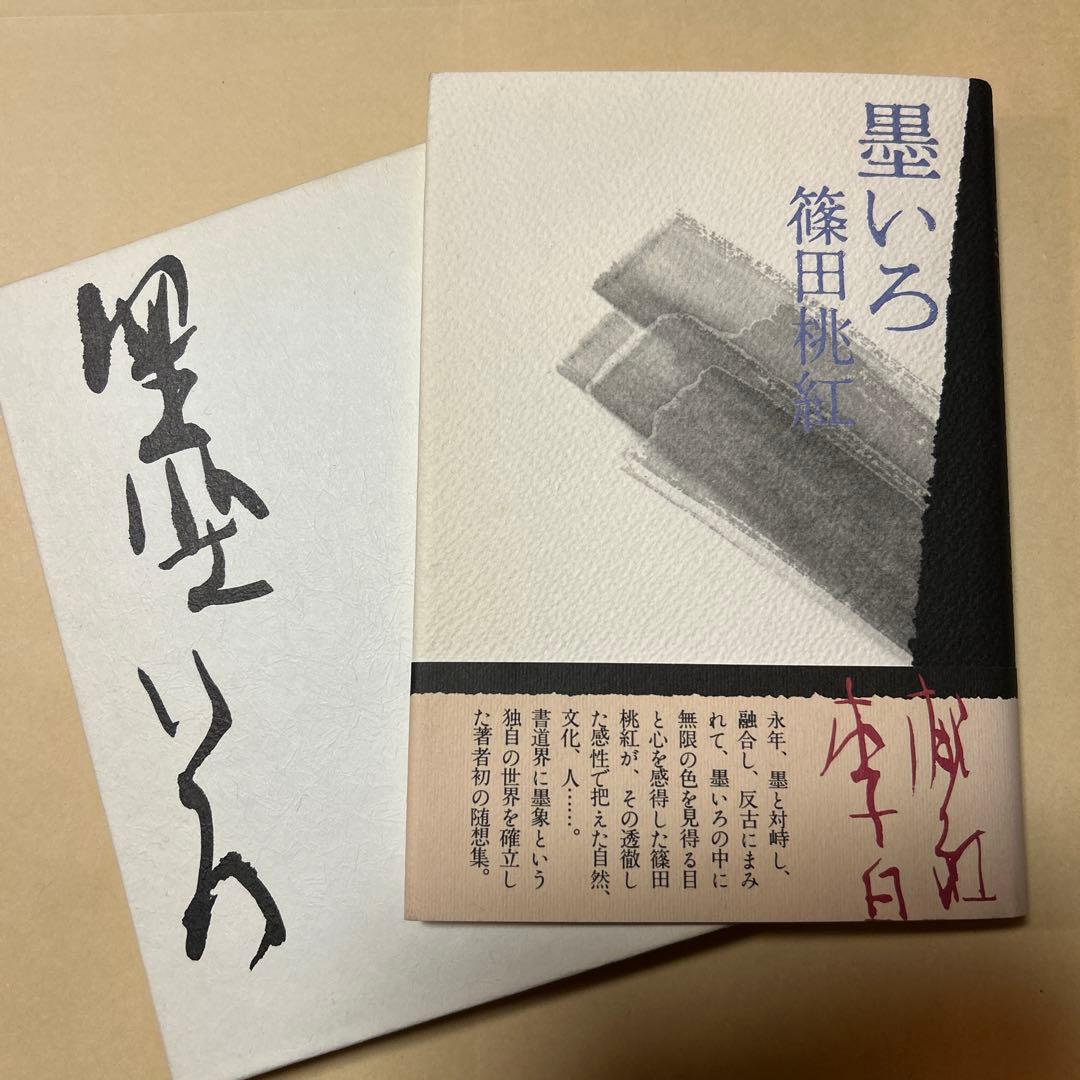 墨いろ
篠田桃紅
永年、墨と対峙し、
融合し、反古にまみ
れて、墨いろの中に
無限の色を見得る目
と心を感得した篠田
桃紅が、その透徹し
た感性で把えた自然、
文化、人……。
書道界に墨象という
独自の世界を確立し
た著者初の随想集。
墨いろ